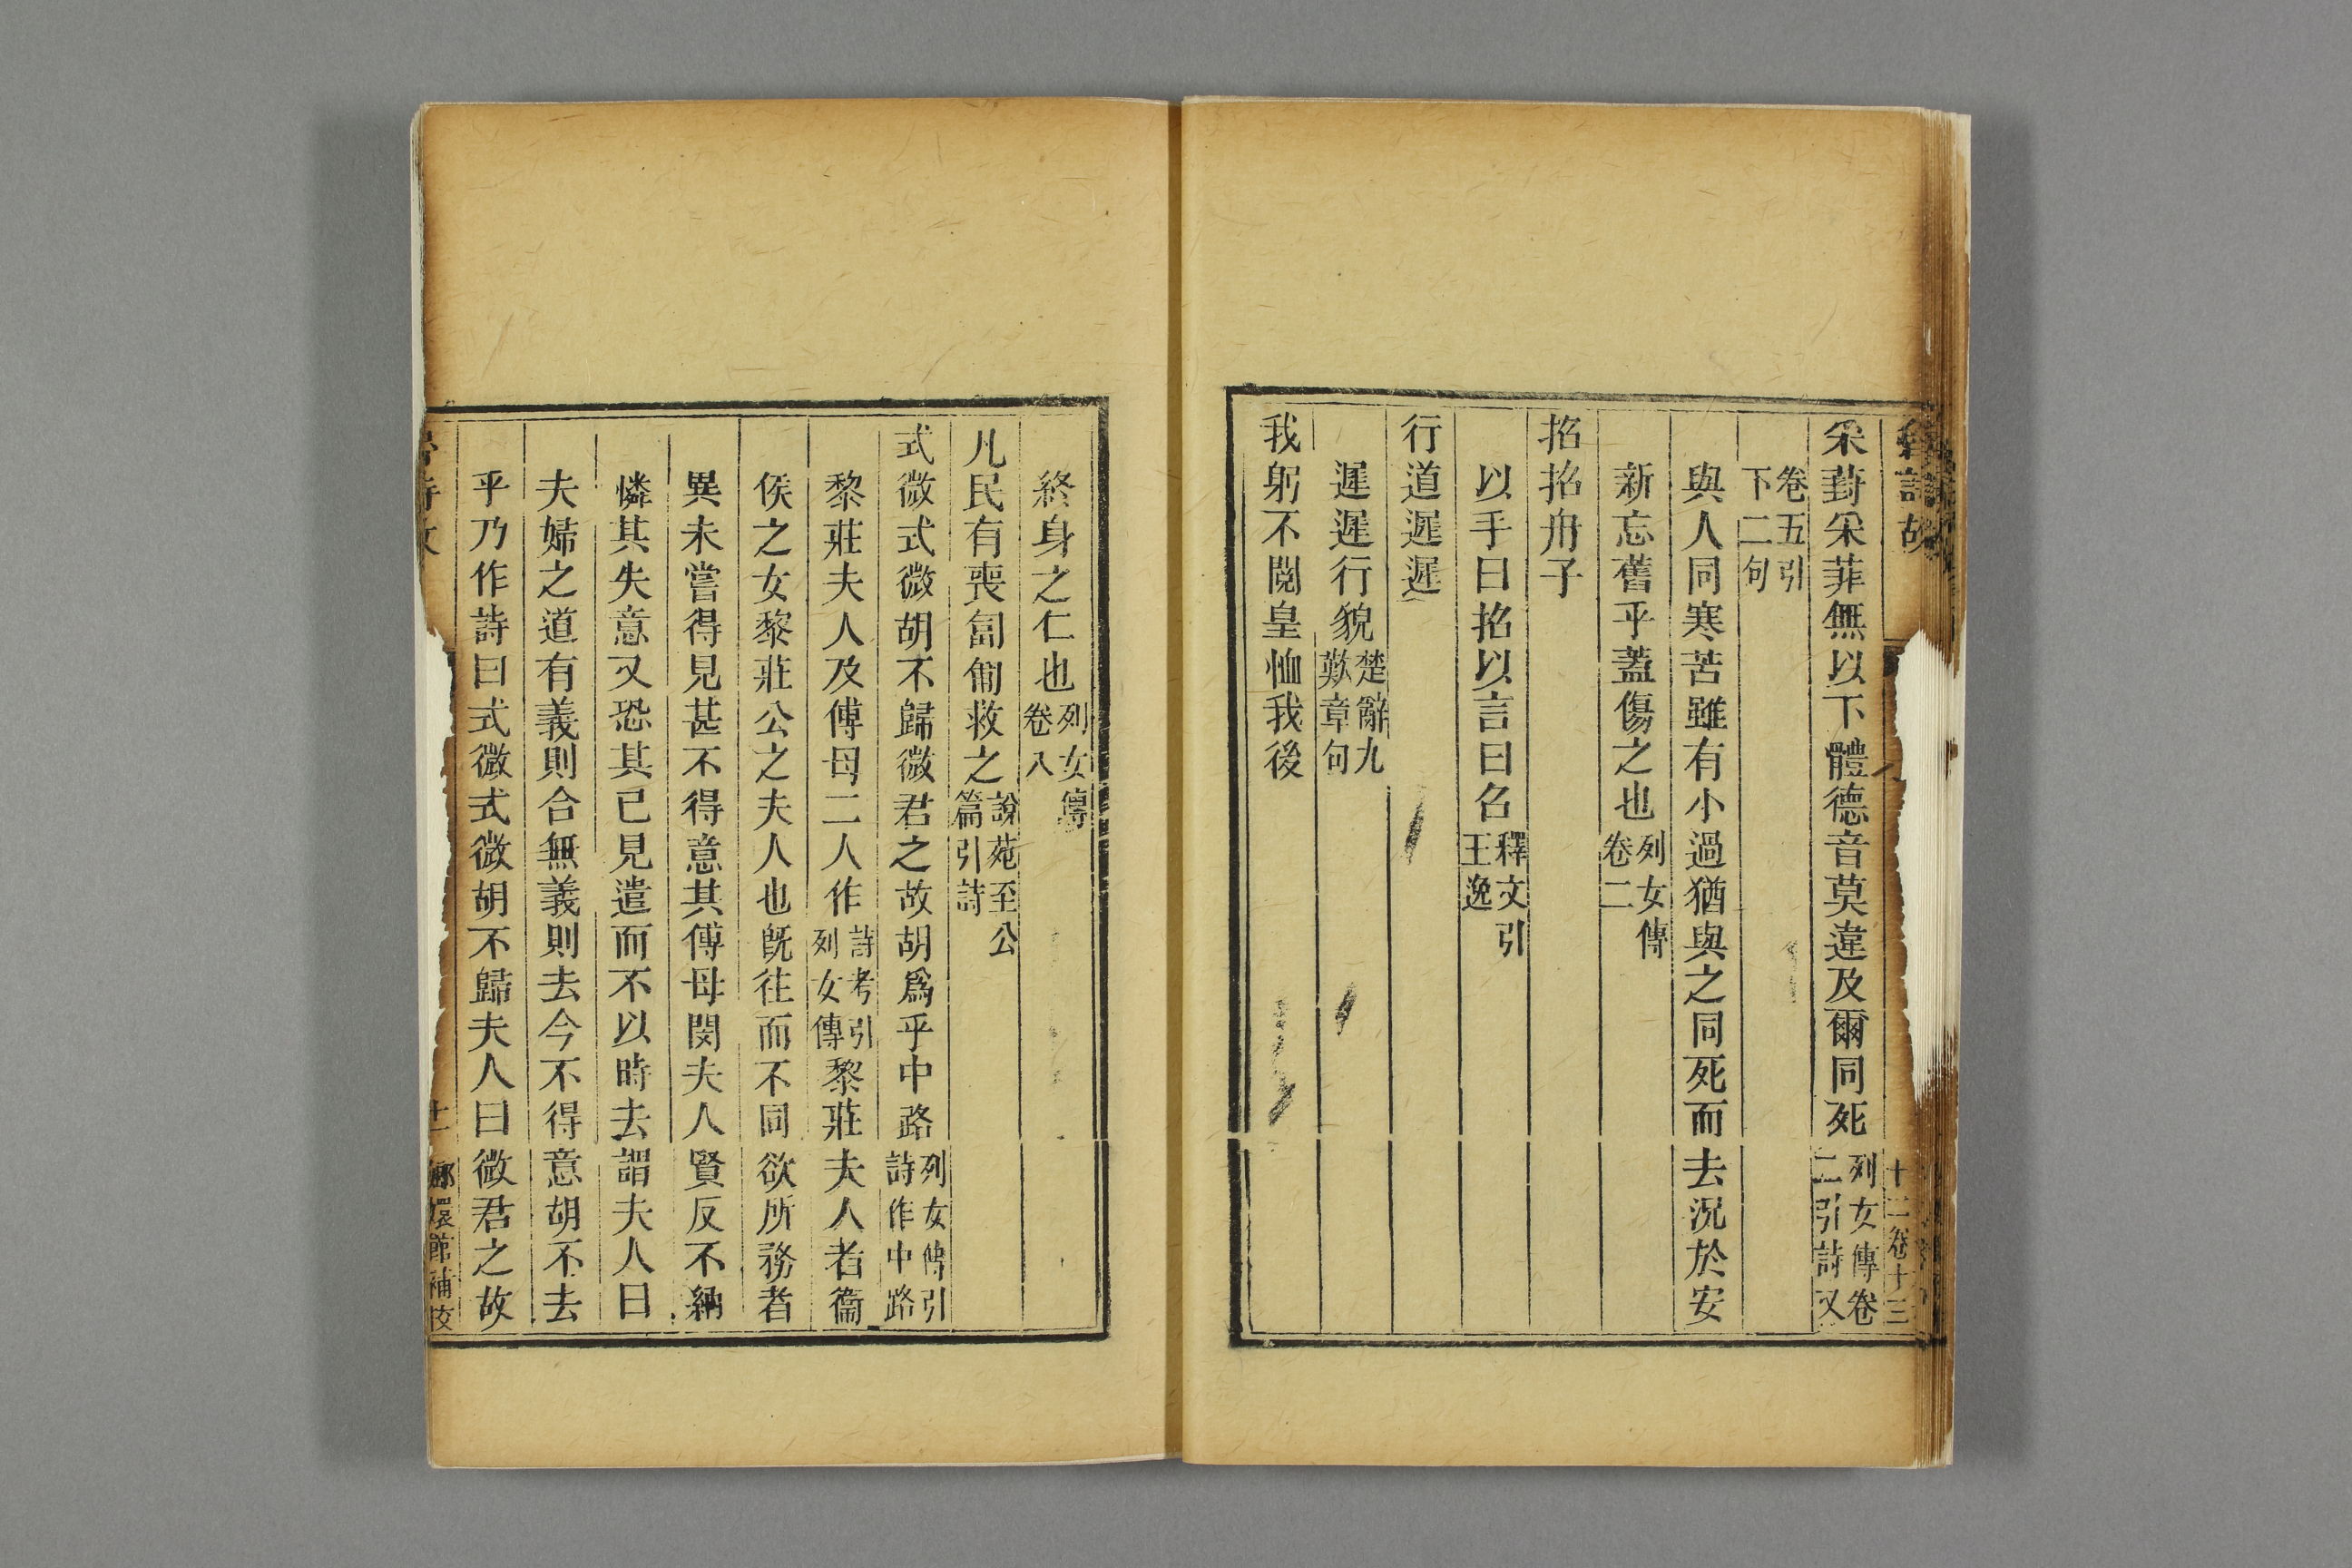 詩故
十二卷十三
采葑采菲無以下體德音莫違及爾同死列女傳卷二引詩又
卷五引下二句
與人同寒苦雖有小過猶與之同死而去況於安
新忘舊乎蓋傷之也列女傳卷二
招招舟子
以手曰招以言曰召釋文引王逸
行道遲遲
遲遲行貌楚辭九歎章句
我躬不閱皇恤我後
終身之仁也列女傳卷八
凡民有喪匐匍救之說苑至公篇引詩
式微式微胡不歸微君之故胡爲乎中路列女傳引詩作中路
黎莊夫人及傅母二人作詩考引列女傳黎莊夫人者衞
侯之女黎莊公之夫人也旣往而不同欲所務者
異未嘗得見甚不得意其傅母閔夫人賢反不納
憐其失意又恐其已見遣而不以時去謂夫人曰
夫婦之道有義則合無義則去今不得意胡不去
乎乃作詩曰式微式微胡不歸夫人曰微君之故
嫏嬛館補校